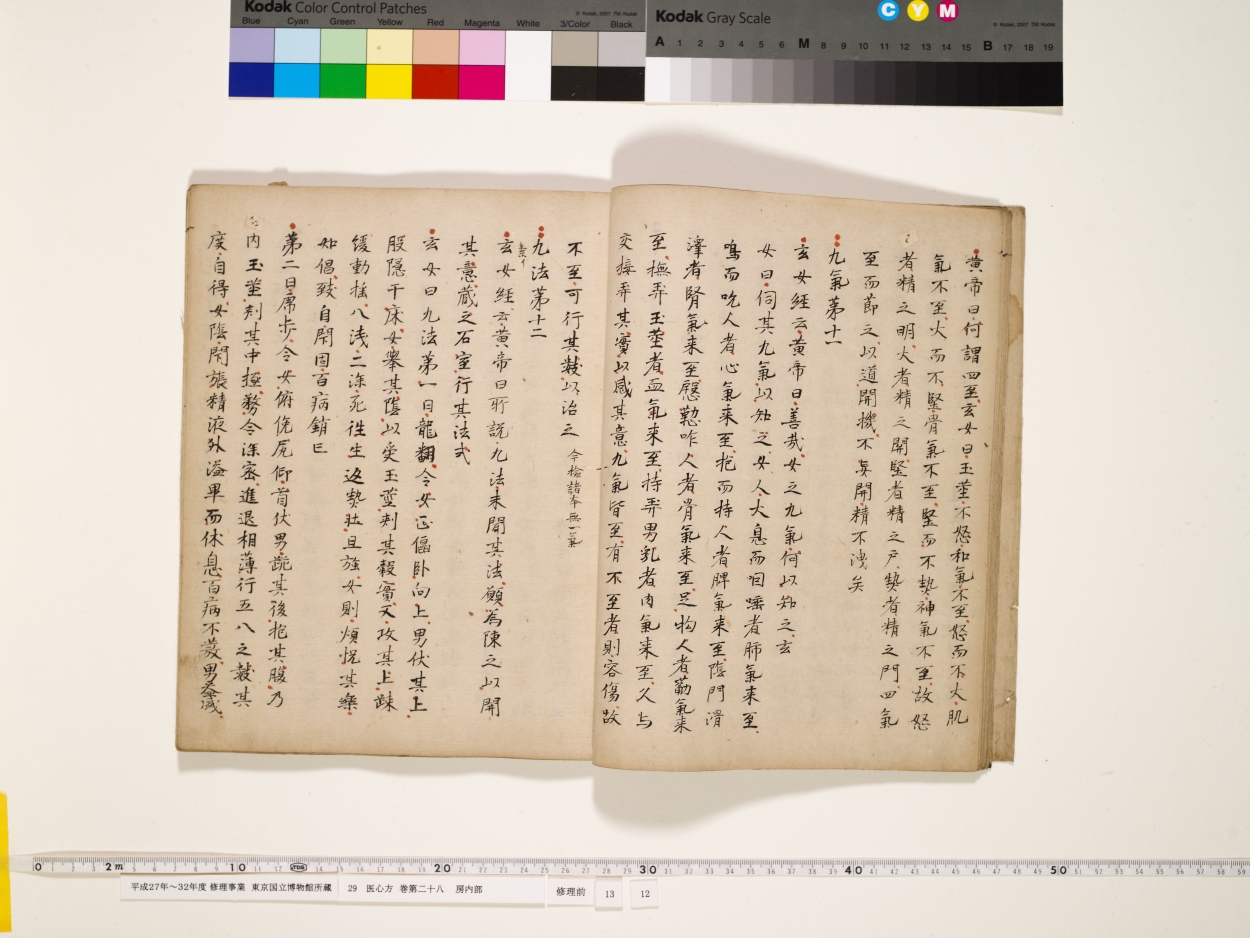 Kodak Color Control Patches
© Kodak, 2007 TM: Kodak
Blue Cyan Green Yellow Red Magenta White 3/Color Black
Kodak Gray Scale
C Y M
© Kodak, 2007 TM: Kodak
A 1 2 3 4 5 6 M 8 9 10 11 12 13 14 15 B 17 18 19
黄帝曰何謂四至玄女曰玉莖不怒和氣不至怒而不大肌
氣不至大而不堅骨氣不至堅而不熱神氣不至故怒
者精之明大者精之開堅者精之戸熱者精之門四氣
至而節之以道開機不妄開精不洩矣
九氣第十一
玄女經云黄帝曰善哉女之九氣何以知之玄
女曰伺其九氣以知之女人大息而咽唾者肺氣来至
鳴而吮人者心氣来至抱而持人者脾氣来至陰門滑
澤者腎氣来至慇懃咋人者骨氣来至足拘人者筋氣来
至撫弄玉莖者血氣来至持弄男乳者肉氣来至久与
交接弄其實以感其意九氣皆至有不至者則容傷故
不至可行其數以治之 今撿諸本無一氣
九法第十二
玄女經云黄帝曰所説九法未聞其法願為陳之以開
其意藏之石室行其法式
玄女曰九法第一曰龍翻令女正偃卧向上男伏其上
股隠于床女舉其陰以受玉莖刾其穀實又攻其上疎
緩動揺八浅二深死往生返勢壯且強女則煩悦其樂
如倡致自閇固百病銷亡
第二曰虎歩令女俯俛尻仰首伏男跪其後抱其腹乃
内玉莖刾其中極務令深密進退相薄行五八之數其
度自得女陰閇張精液外溢畢而休息百病不發男益盛
0 2m 10 20 30 40 50
平成27年～32年度 修理事業 東京国立博物館所蔵
29 医心方 巻第二十八 房内部
修理前
13
12